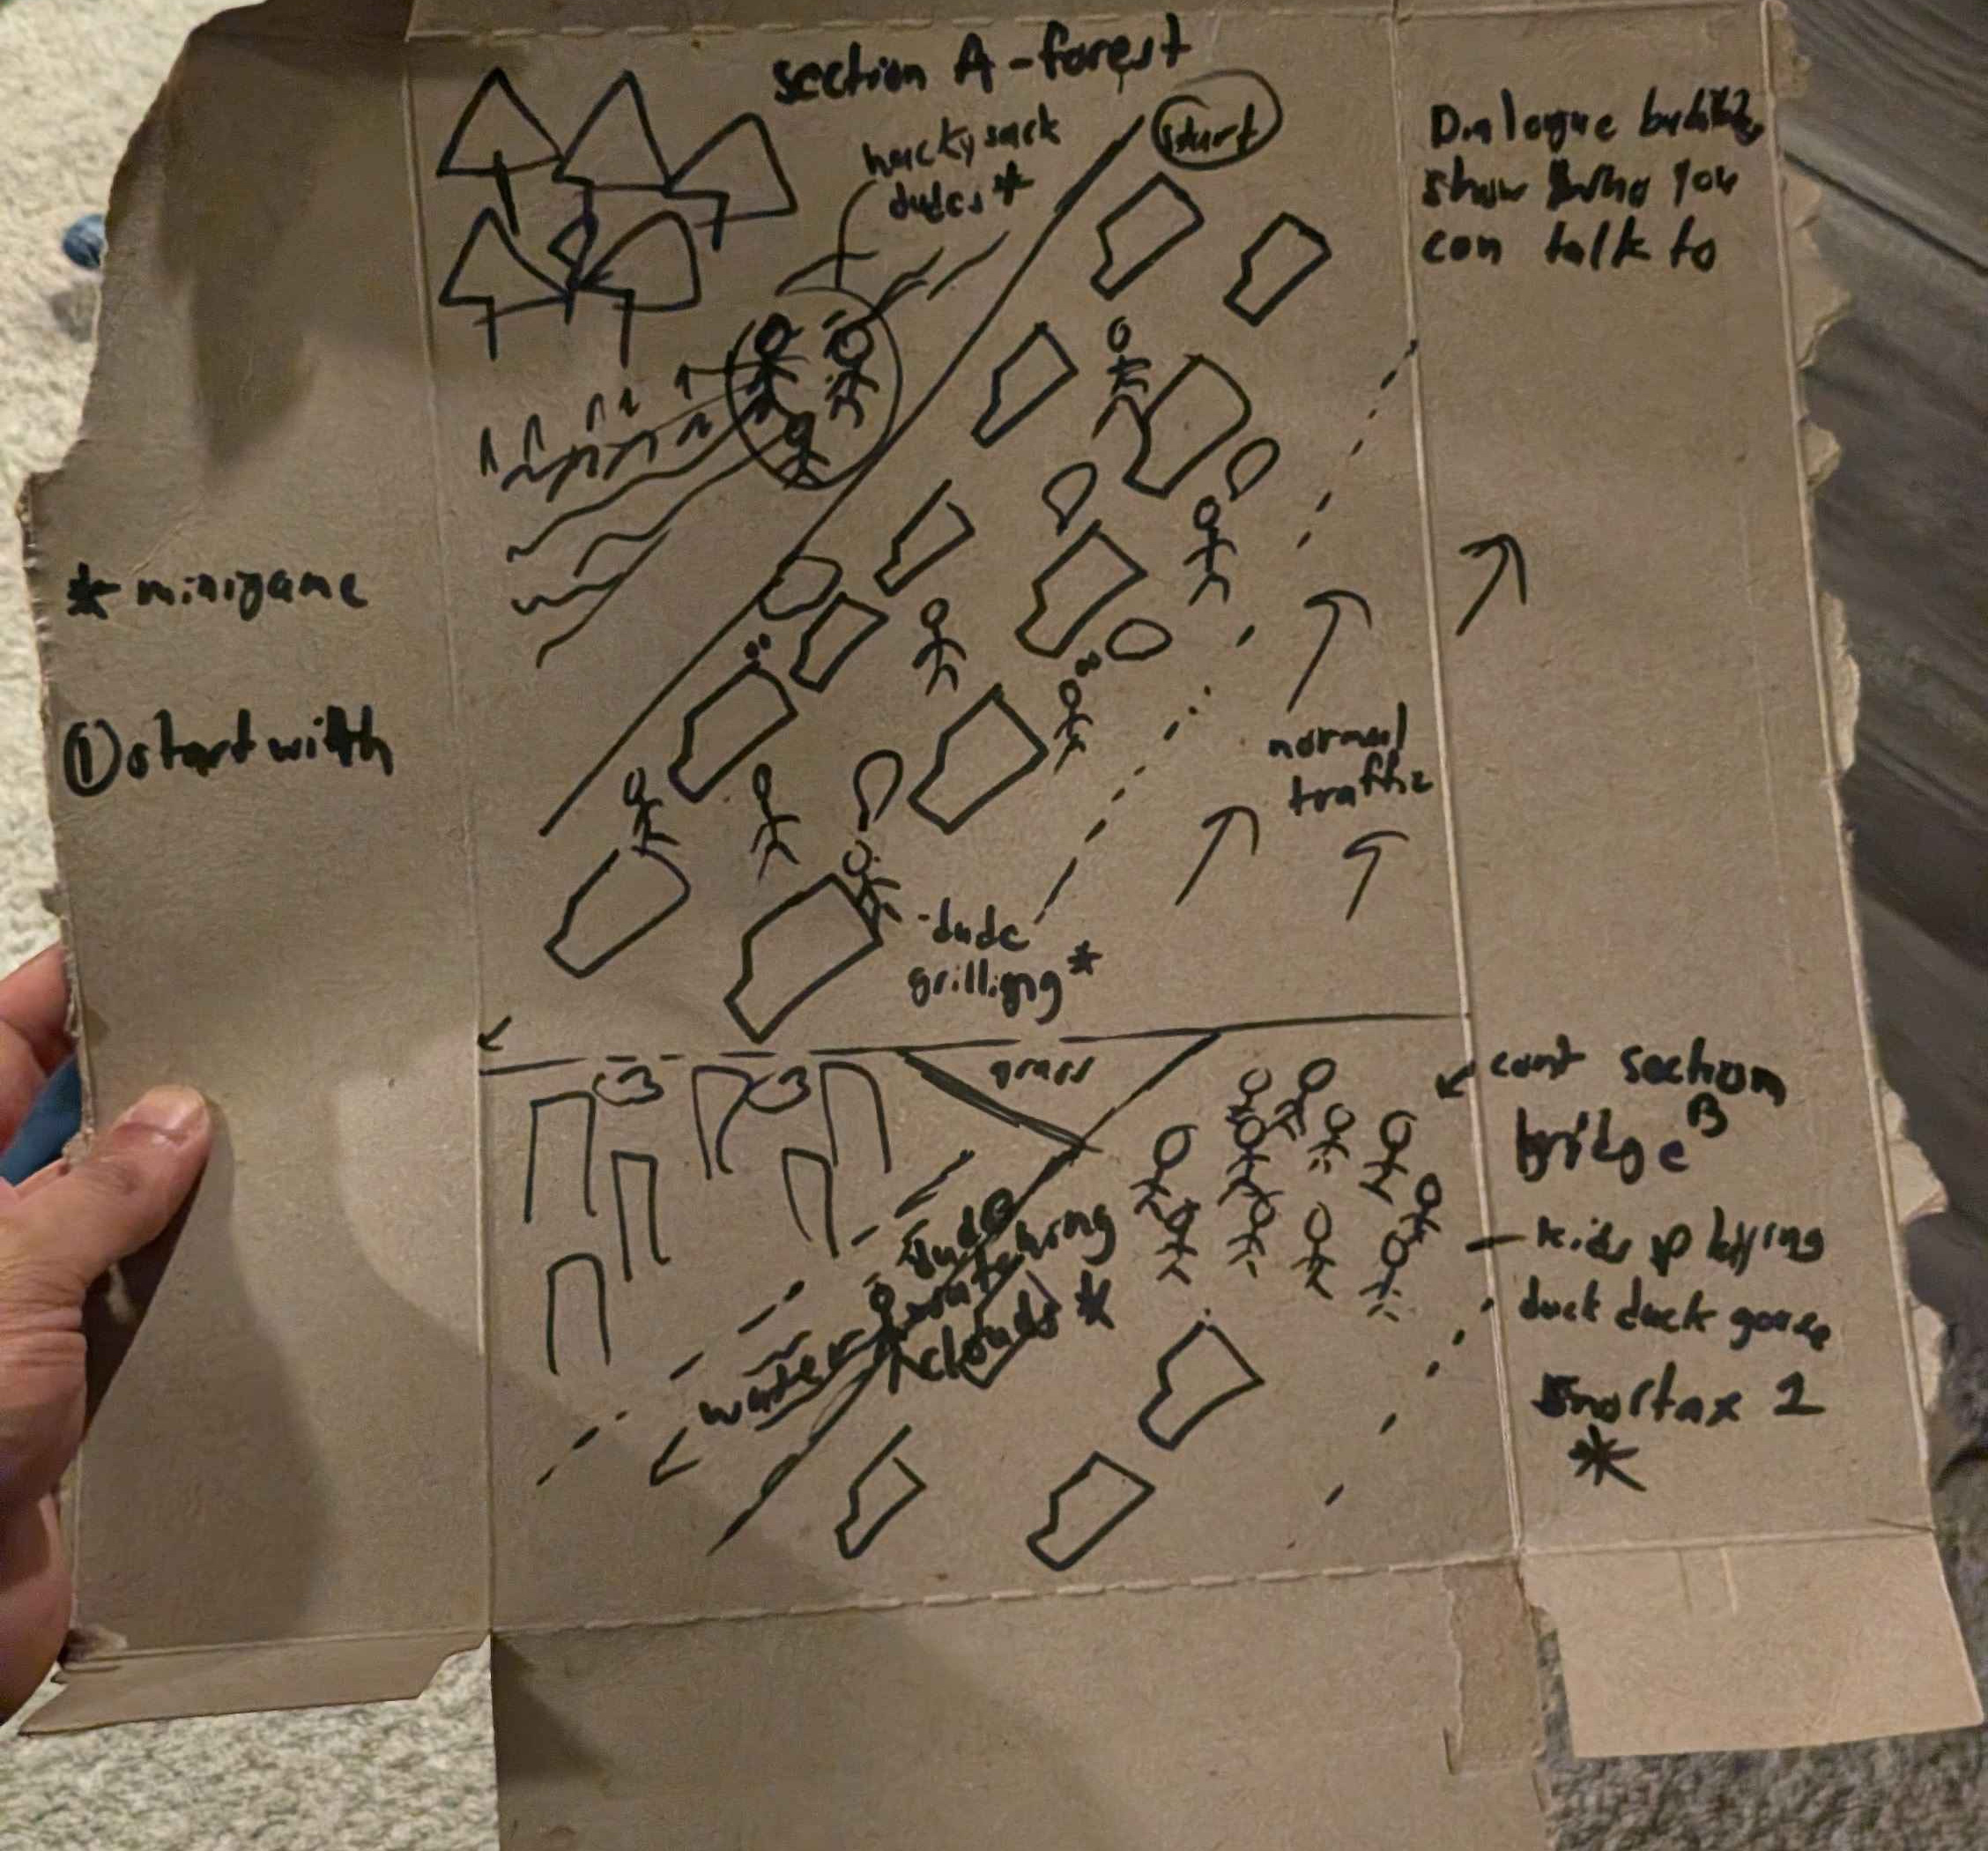 section A - forest
start
hacky sack
dudes *
Dialogue bubbles
show who you
can talk to
* minigame
① start with
normal
traffic
-dude
grilligng *
grass
cont section
bridge B
dude
watching
clouds *
water
- kids playing
duck duck goose
Snorlax 1
*